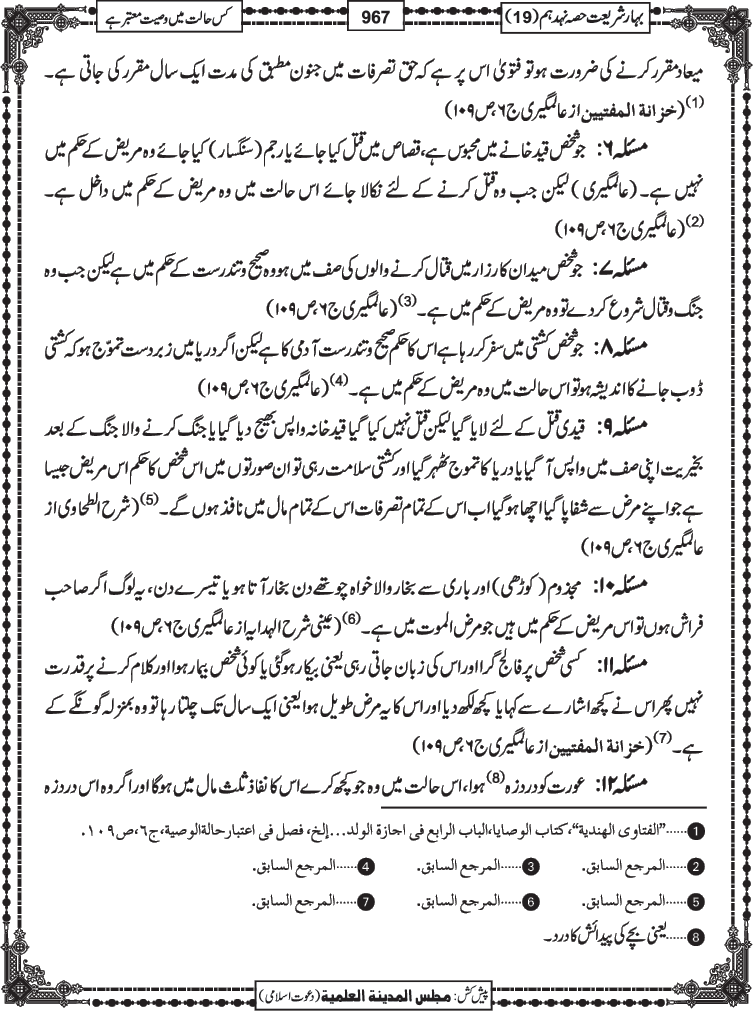 بہار شریعت حصہ نہد ہم (19)
967
کس حالت میں وصیت معتبر ہے
میعاد مقرر کرنے کی ضرورت ہو تو فتویٰ اس پر ہے کہ حق تصرفات میں جنون مطبق کی مدت ایک سال مقرر کی جاتی ہے۔
(1) (خزانۃ المفتیین از عالمگیری ج۶، ص۱۰۹)
مسئلہ ۶: جو شخص قید خانے میں محبوس ہے، قصاص میں قتل کیا جائے یا رجم (سنگسار) کیا جائے وہ مریض کے حکم میں
نہیں ہے۔ (عالمگیری) لیکن جب وہ قتل کرنے کے لئے نکالا جائے اس حالت میں وہ مریض کے حکم میں داخل ہے۔
(2) (عالمگیری ج۶، ص۱۰۹)
مسئلہ ۷: جو شخص میدان کارزار میں قتال کرنے والوں کی صف میں ہو وہ صحیح و تندرست کے حکم میں ہے لیکن جب وہ
جنگ و قتال شروع کردے تو وہ مریض کے حکم میں ہے۔ (3) (عالمگیری ج۶، ص۱۰۹)
مسئلہ ۸: جو شخص کشتی میں سفر کررہا ہے اس کا حکم صحیح و تندرست آدمی کا ہے لیکن اگر دریا میں زبردست تموّج ہو کہ کشتی
ڈوب جانے کا اندیشہ ہو تو اس حالت میں وہ مریض کے حکم میں ہے۔ (4) (عالمگیری ج۶، ص۱۰۹)
مسئلہ ۹: قیدی قتل کے لئے لایا گیا لیکن قتل نہیں کیا گیا قید خانہ واپس بھیج دیا گیا یا جنگ کرنے والا جنگ کے بعد
بخیریت اپنی صف میں واپس آگیا یا دریا کا تموج ٹھہر گیا اور کشتی سلامت رہی تو ان صورتوں میں اس شخص کا حکم اس مریض جیسا
ہے جو اپنے مرض سے شفا پا گیا اچھا ہوگیا اب اس کے تمام تصرفات اس کے تمام مال میں نافذ ہوں گے۔ (5) (شرح الطحاوی از
عالمگیری ج۶، ص۱۰۹)
مسئلہ ۱۰: مجذوم (کوڑھی) اور باری سے بخار والا خواہ چوتھے دن بخار آتا ہو یا تیسرے دن، یہ لوگ اگر صاحب
فراش ہوں تو اس مریض کے حکم میں ہیں جو مرض الموت میں ہے۔ (6) (عینی شرح الہدایہ از عالمگیری ج۶، ص۱۰۹)
مسئلہ ۱۱: کسی شخص پر فالج گرا اور اس کی زبان جاتی رہی یعنی بیکار ہوگئی یا کوئی شخص بیمار ہوا اور کلام کرنے پر قدرت
نہیں پھر اس نے کچھ اشارے سے کہا یا کچھ لکھ دیا اور اس کا یہ مرض طویل ہوا یعنی ایک سال تک چلتا رہا تو وہ بمنزلہ گونگے کے
ہے۔ (7) (خزانۃ المفتیین از عالمگیری ج۶، ص۱۰۹)
مسئلہ ۱۲: عورت کو درد زہ (8) ہوا، اس حالت میں وہ جو کچھ کرے اس کا نفاذ ثلث مال میں ہوگا اور اگر وہ اس درد زہ
1 ......"الفتاوی الهندية"، كتاب الوصايا، الباب الرابع فی اجازة الولد...إلخ، فصل فی اعتبار حالة الوصية، ج٦، ص١٠٩.
2 ......المرجع السابق. 3 ......المرجع السابق. 4 ......المرجع السابق.
5 ......المرجع السابق. 6 ......المرجع السابق. 7 ......المرجع السابق.
8 ......یعنی بچے کی پیدائش کا درد۔
پیش کش: مجلس المدينة العلمية (دعوت اسلامی)